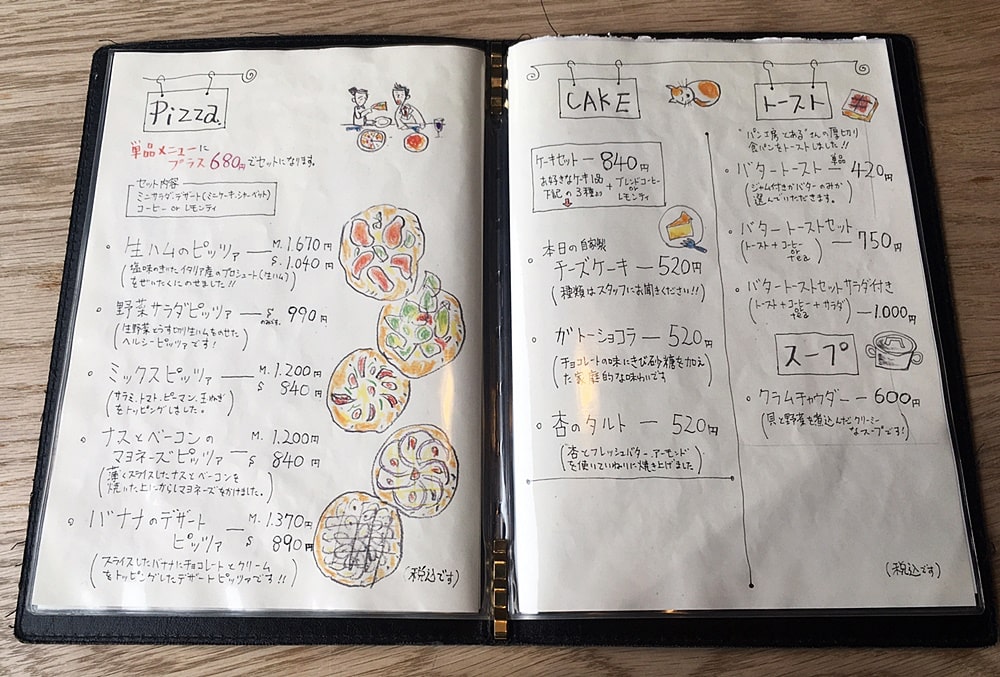 Pizza
単品メニューに
プラス680円でセットになります。
セット内容
ミニサラダ・デザート(ミニケーキ、シャーベット)
コーヒー or レモンティ
生ハムのピッツァ — M. 1.670円
S. 1.040円
(塩味のきいたイタリア産のプロシュート(生ハム)
をぜいたくにのせました!!)
野菜サラダピッツァ — S 990円
のみです。
(生野菜とうす切り生ハムをのせた
ヘルシーピッツァです!)
ミックスピッツァ — M. 1.200円
S 840円
(サラミ、トマト、ピーマン、玉ねぎ
をトッピングしました。)
ナスとベーコンの
マヨネーズピッツァ — M. 1.200円
S 840円
(薄くスライスしたナスとベーコンを
焼いた上にからしマヨネーズをかけました。)
バナナのデザート
ピッツァ — M. 1.370円
S 890円
(スライスしたバナナにチョコレートとクリーム
をトッピングしたデザートピッツァです!!)
(税込です)
CAKE
ケーキセット — 840円
お好きなケーキ1品
下記の3種わり
+ ブレンドコーヒー
or
レモンティ
本日の自家製
チーズケーキ — 520円
(種類はスタッフにお聞きください!!)
ガトーショコラ — 520円
(チョコレートの味にきび砂糖を加え
た家庭的な味わいです)
杏のタルト — 520円
(杏とフレッシュバター、アーモンド
を使いていねいに焼き上げました)
トースト
"パン工房とある"さんの厚切り
食パンをトーストしました!!
バタートースト — 単品 420円
(ジャム付きかバターのみか
選んでいただきます。)
バタートーストセット — 750円
(トースト + コーヒー
or
tea)
バタートーストセットサラダ付き
(トースト + コーヒー + サラダ)
tea
— 1.000円
スープ
クラムチャウダー — 600円
(貝と野菜を煮込んだクリーミー
なスープです!)
(税込です)